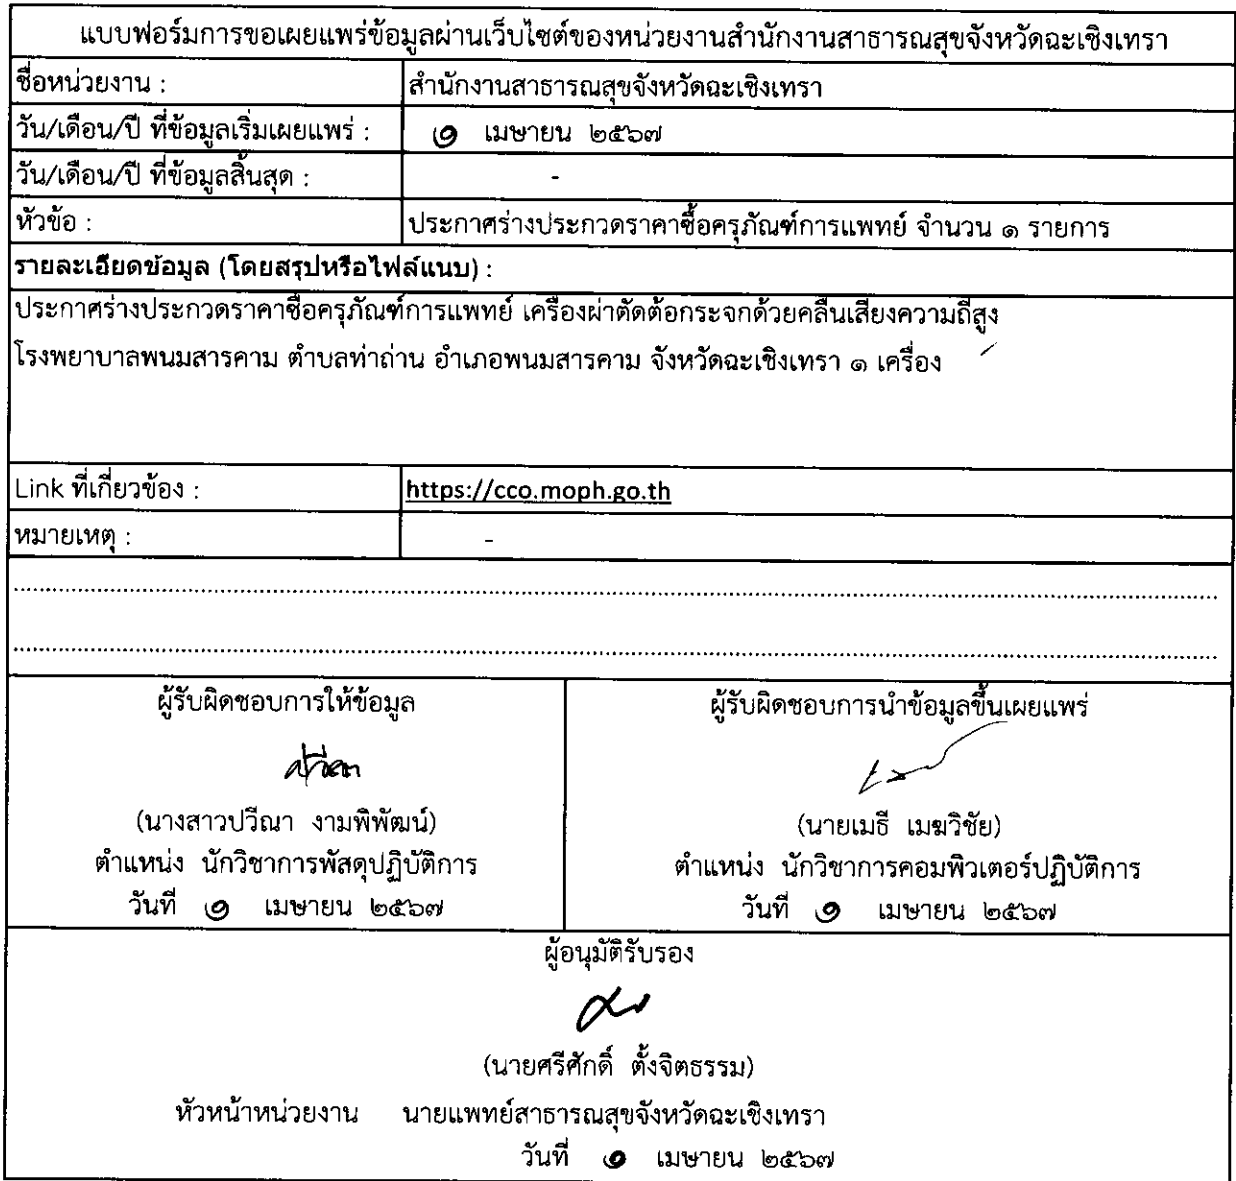 แบบฟอร์มการขอเผยแพร่ข้อมูลผ่านเว็บไซต์ของหน่วยงานสำนักงานสาธารณสุขจังหวัดฉะเชิงเทรา
ชื่อหน่วยงาน : สำนักงานสาธารณสุขจังหวัดฉะเชิงเทรา
วัน/เดือน/ปี ที่ข้อมูลเริ่มเผยแพร่ : เมษายน ๒๕๖๗
วัน/เดือน/ปี ที่ข้อมูลสิ้นสุด : -
หัวข้อ : ประกาศร่างประกวดราคาซื้อครุภัณฑ์การแพทย์ จำนวน ๑ รายการ
รายละเอียดข้อมูล (โดยสรุปหรือไฟล์แนบ) :
ประกาศร่างประกวดราคาซื้อครุภัณฑ์การแพทย์ เครื่องผ่าตัดต้อกระจกด้วยคลื่นเสียงความถี่สูง
โรงพยาบาลพนมสารคาม ตำบลท่าถ่าน อำเภอพนมสารคาม จังหวัดฉะเชิงเทรา ๑ เครื่อง
Link ที่เกี่ยวข้อง : https://cco.moph.go.th
หมายเหตุ : -
ผู้รับผิดชอบการให้ข้อมูล
(นางสาวปวีณา งามพิพัฒน์)
ตำแหน่ง นักวิชาการพัสดุปฏิบัติการ
วันที่ เมษายน ๒๕๖๗
ผู้รับผิดชอบการนำข้อมูลขึ้นเผยแพร่
(นายเมธี เมฆวิชัย)
ตำแหน่ง นักวิชาการคอมพิวเตอร์ปฏิบัติการ
วันที่ เมษายน ๒๕๖๗
ผู้อนุมัติรับรอง
(นายศรีศักดิ์ ตั้งจิตธรรม)
หัวหน้าหน่วยงาน นายแพทย์สาธารณสุขจังหวัดฉะเชิงเทรา
วันที่ เมษายน ๒๕๖๗